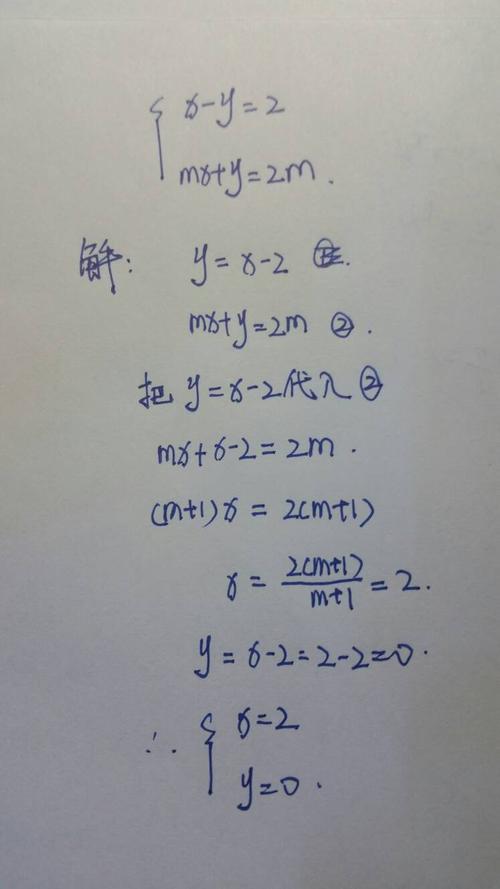 x-y=2
mx+y=2m.
解: y=x-2
mx+y=2m ②.
把 y=x-2代入②
mx+x-2=2m.
(m+1)x=2(m+1)
x=2(m+1)/m+1=2.
y=x-2=2-2=0.
∴ { x=2
y=0.